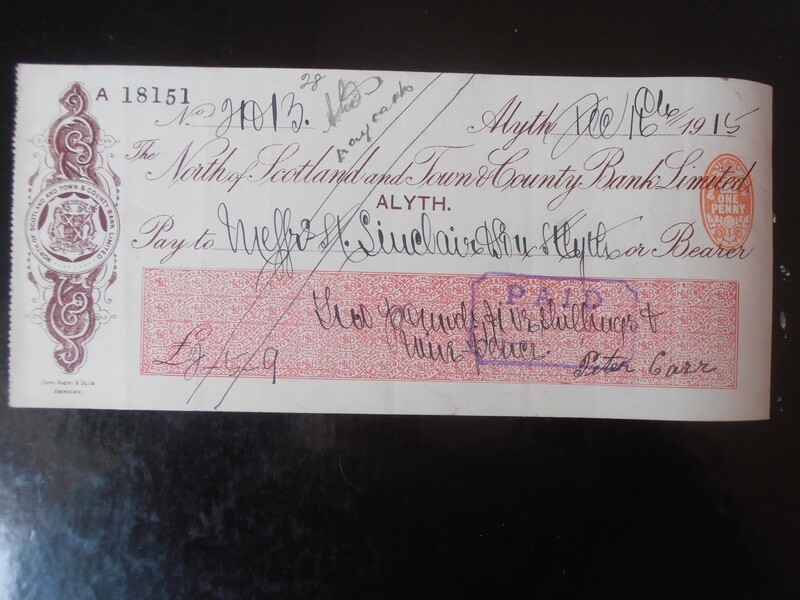 A 18151
28
No 21013.
pay cash
Alyth Dec 1915
The North of Scotland and Town & County Bank Limited,
ALYTH.
ONE
PENNY
NORTH OF SCOTLAND AND TOWN & COUNTY BANK LIMITED
Pay to Messrs St. Sinclair & Son or Bearer
PAID
Two pounds five shillings &
nine pence
£2-5-9
Peter Carr
ABERDEEN.